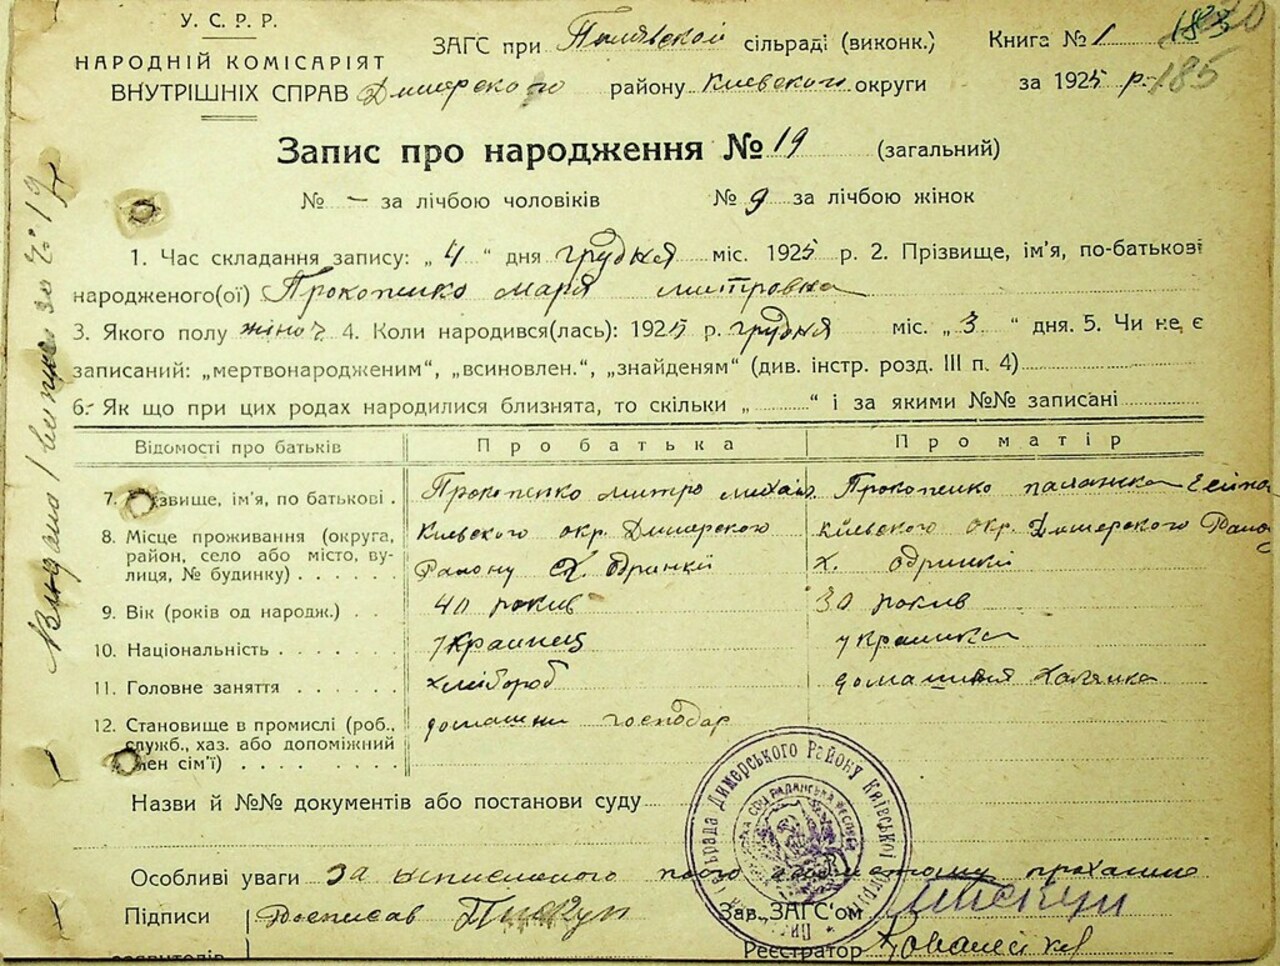 У. С. Р. Р.
НАРОДНІЙ КОМІСАРІЯТ
ВНУТРІШНІХ СПРАВ
ЗАГС при сільраді (виконк.) Книга № 1
Димерского району Киевского округи за 1925 р. 185
Запис про народження № 19 (загальний)
№ – за лічбою чоловіків № 9 за лічбою жінок
1. Час складання запису: „ 4 “ дня грудня міс. 1925 р. 2. Прізвище, ім'я, по-батькові
народженого(ої) Прокопенко Маря Митровна
3. Якого полу жіноч 4. Коли народився(лась): 1925 р. грудня міс. „ 3 “ дня. 5. Чи не є
записаний: „мертвонародженим“, „всиновлен.“, „знайденям“ (див. інстр. розд. III п. 4)
6. Як що при цих родах народилися близнята, то скільки „ “ і за якими №№ записані
Відомості про батьків Про батька Про матір
7. Прізвище, ім'я, по батькові . Прокопенко Митро Михай. Прокопенко
8. Місце проживання (округа, район, село або місто, вулиця, № будинку) . . . . .
Киевского окр. Димерского Киевского окр. Димерского Району
Району Х. Одринки Х. Одринки
9. Вік (років од народж.) . . 40 рокив 30 рокив
10. Національність . . . . . . . Украинец украинка
11. Головне заняття . . . . . . хлибороб домашня хазяйка
12. Становище в промислі (роб., служб., хаз. або допоміжний член сім'ї) . . . . . . . .
домашни господар
Назви й №№ документів або постанови суду
Сільрада Димерського Району Київської Округи
Особливі уваги За прохание
Підписи Росписав Пискун Зав. „ЗАГС‘ом Пискун
заявителів Реєстратор